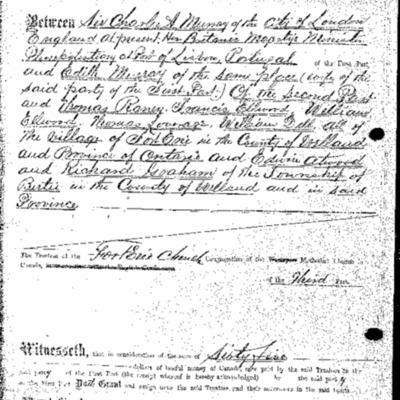 Between Sir Charles A Murray of the City of London
England at present Her Britanic Majestys Minister
Plenipotentiary at Port of Lisbon, Portugal of the First Part
and Edith Murray of the same place (wife of the
said party of the First Part.) Of the Second Part
and Thomas Raney, Francis Ellwood, William
Ellwood, Thomas William all of
the Village of Fort Erie in the County of Welland
and Province of Ontario and Edwin Atwood
and Richard Graham of the Township of
Bertie in the County of Welland and in said
Province
The Trustees of the Fort Erie Church Congregation of the Methodist Church in
Canada,
of the Third Part.
Witnesseth, that in consideration of the sum of Sixty Five
dollars of lawful money of Canada, now paid by the said Trustees to the
said party of the First Part (the receipt whereof is hereby acknowledged) the said party
of the First Part Doth Grant and assign unto the said Trustees, and their successors in the said